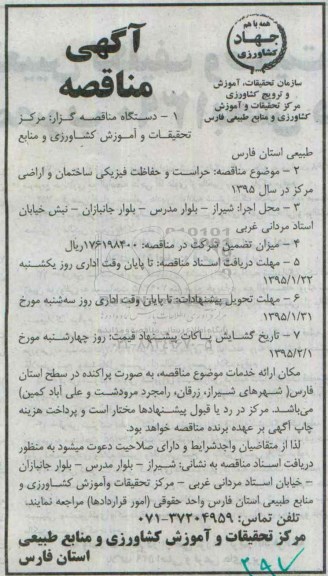 همه با هم
جهاد
کشاورزی
سازمان تحقیقات، آموزش
و ترویج کشاورزی
مرکز تحقیقات و آموزش
کشاورزی و منابع طبیعی فارس
آگهی
مناقصه
۱ – دستگاه مناقصه گزار: مرکز
تحقیقات و آموزش کشاورزی و منابع
طبیعی استان فارس
۲ – موضوع مناقصه: حراست و حفاظت فیزیکی ساختمان و اراضی
مرکز در سال ۱۳۹۵
۳ – محل اجرا: شیراز – بلوار مدرس – بلوار جانبازان – نبش خیابان
استاد مردانی غربی
۴ – میزان تضمین شرکت در مناقصه: ۱۷۶۱۹۸۴۰۰ریال
۵ – مهلت دریافت اسناد مناقصه: تا پایان وقت اداری روز یکشنبه
۱۳۹۵/۱/۲۲
۶ – مهلت تحویل پیشنهادات: تا پایان وقت اداری روز سه‌شنبه مورخ
۱۳۹۵/۱/۳۱
۷ – تاریخ گشایش پاکات پیشنهاد قیمت: روز چهارشنبه مورخ
۱۳۹۵/۲/۱
مکان ارائه خدمات موضوع مناقصه، به صورت پراکنده در سطح استان
فارس( شهرهای شیراز، زرقان، رامجرد مرودشت و علی آباد کمین)
می‌باشد. مرکز در رد یا قبول پیشنهادها مختار است و پرداخت هزینه
چاپ آگهی بر عهده برنده مناقصه خواهد بود.
لذا از متقاضیان واجدشرایط و دارای صلاحیت دعوت میشود به منظور
دریافت اسناد مناقصه به نشانی: شیراز – بلوار مدرس – بلوار جانبازان
– خیابان استاد مردانی غربی – مرکز تحقیقات وآموزش کشاورزی و
منابع طبیعی استان فارس واحد حقوقی (امور قراردادها) مراجعه نمایند.
تلفن تماس: ۳۷۲۰۴۹۵۹-۰۷۱
مرکز تحقیقات و آموزش کشاورزی و منابع طبیعی
استان فارس